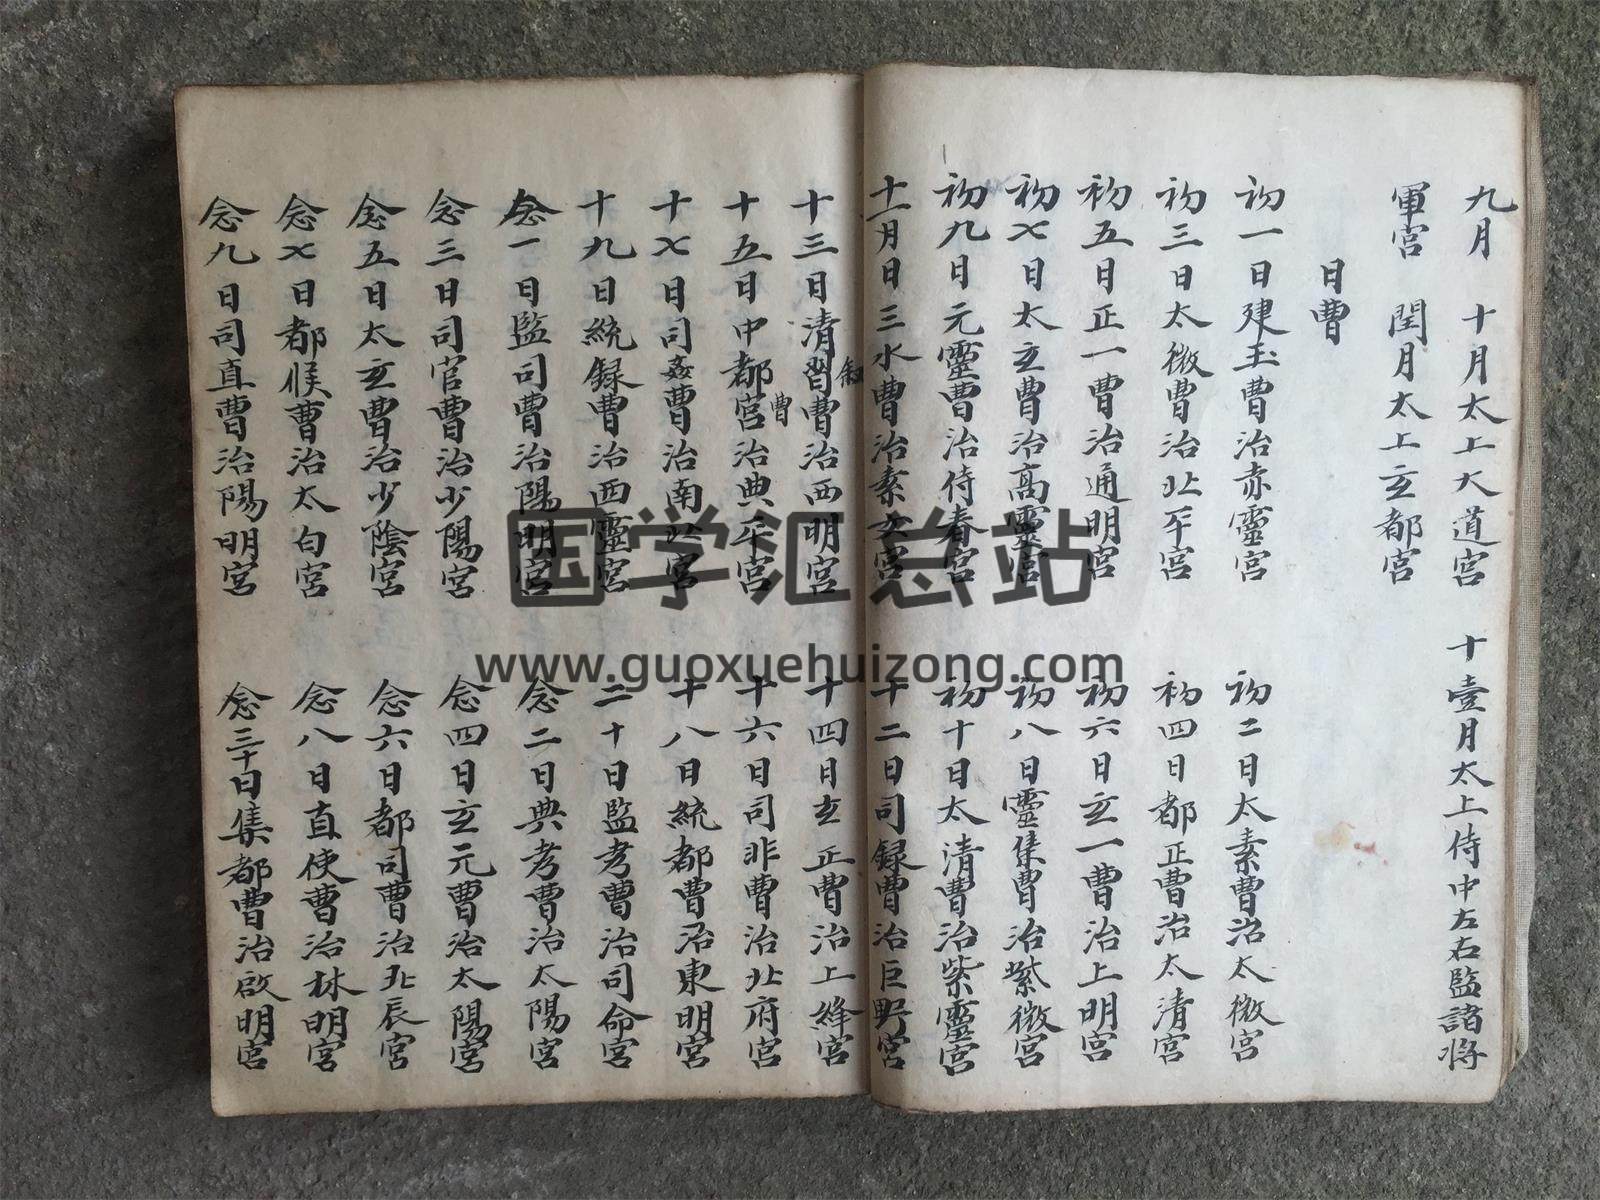 九月　十月太上大道宮　十壹月太上侍中左右監諸将
軍宮　閏月太上玄都宮
日曹
初一日建玉曹治赤靈宮　初二日太素曹治太微宮
初三日太微曹治北平宮　初四日都正曹治太清宮
初五日正一曹治通明宮　初六日玄一曹治上明宮
初七日太玄曹治高靈宮　初八日靈集曹治紫微宮
初九日元靈曹治侍春宮　初十日太清曹治紫靈宮
十一月日三水曹治素女宮　十二日司録曹治巨野宮
十三日清習曹治西明宮　十四日玄正曹治上絳宮
十五日中都宮曹治典平宮　十六日司非曹治北府宮
十七日司姦曹治南北宮　十八日統都曹治東明宮
十九日統録曹治西靈宮　二十日監考曹治司命宮
念一日監司曹治陽明宮　念二日典考曹治太陽宮
念三日司官曹治少陽宮　念四日玄元曹治太陽宮
念五日太玄曹治少陰宮　念六日都司曹治北辰宮
念七日都候曹治太白宮　念八日直使曹治林明宮
念九日司直曹治陽明宮　念三十日集都曹治啟明宮
国学汇总站
www.guoxuehuizong.com